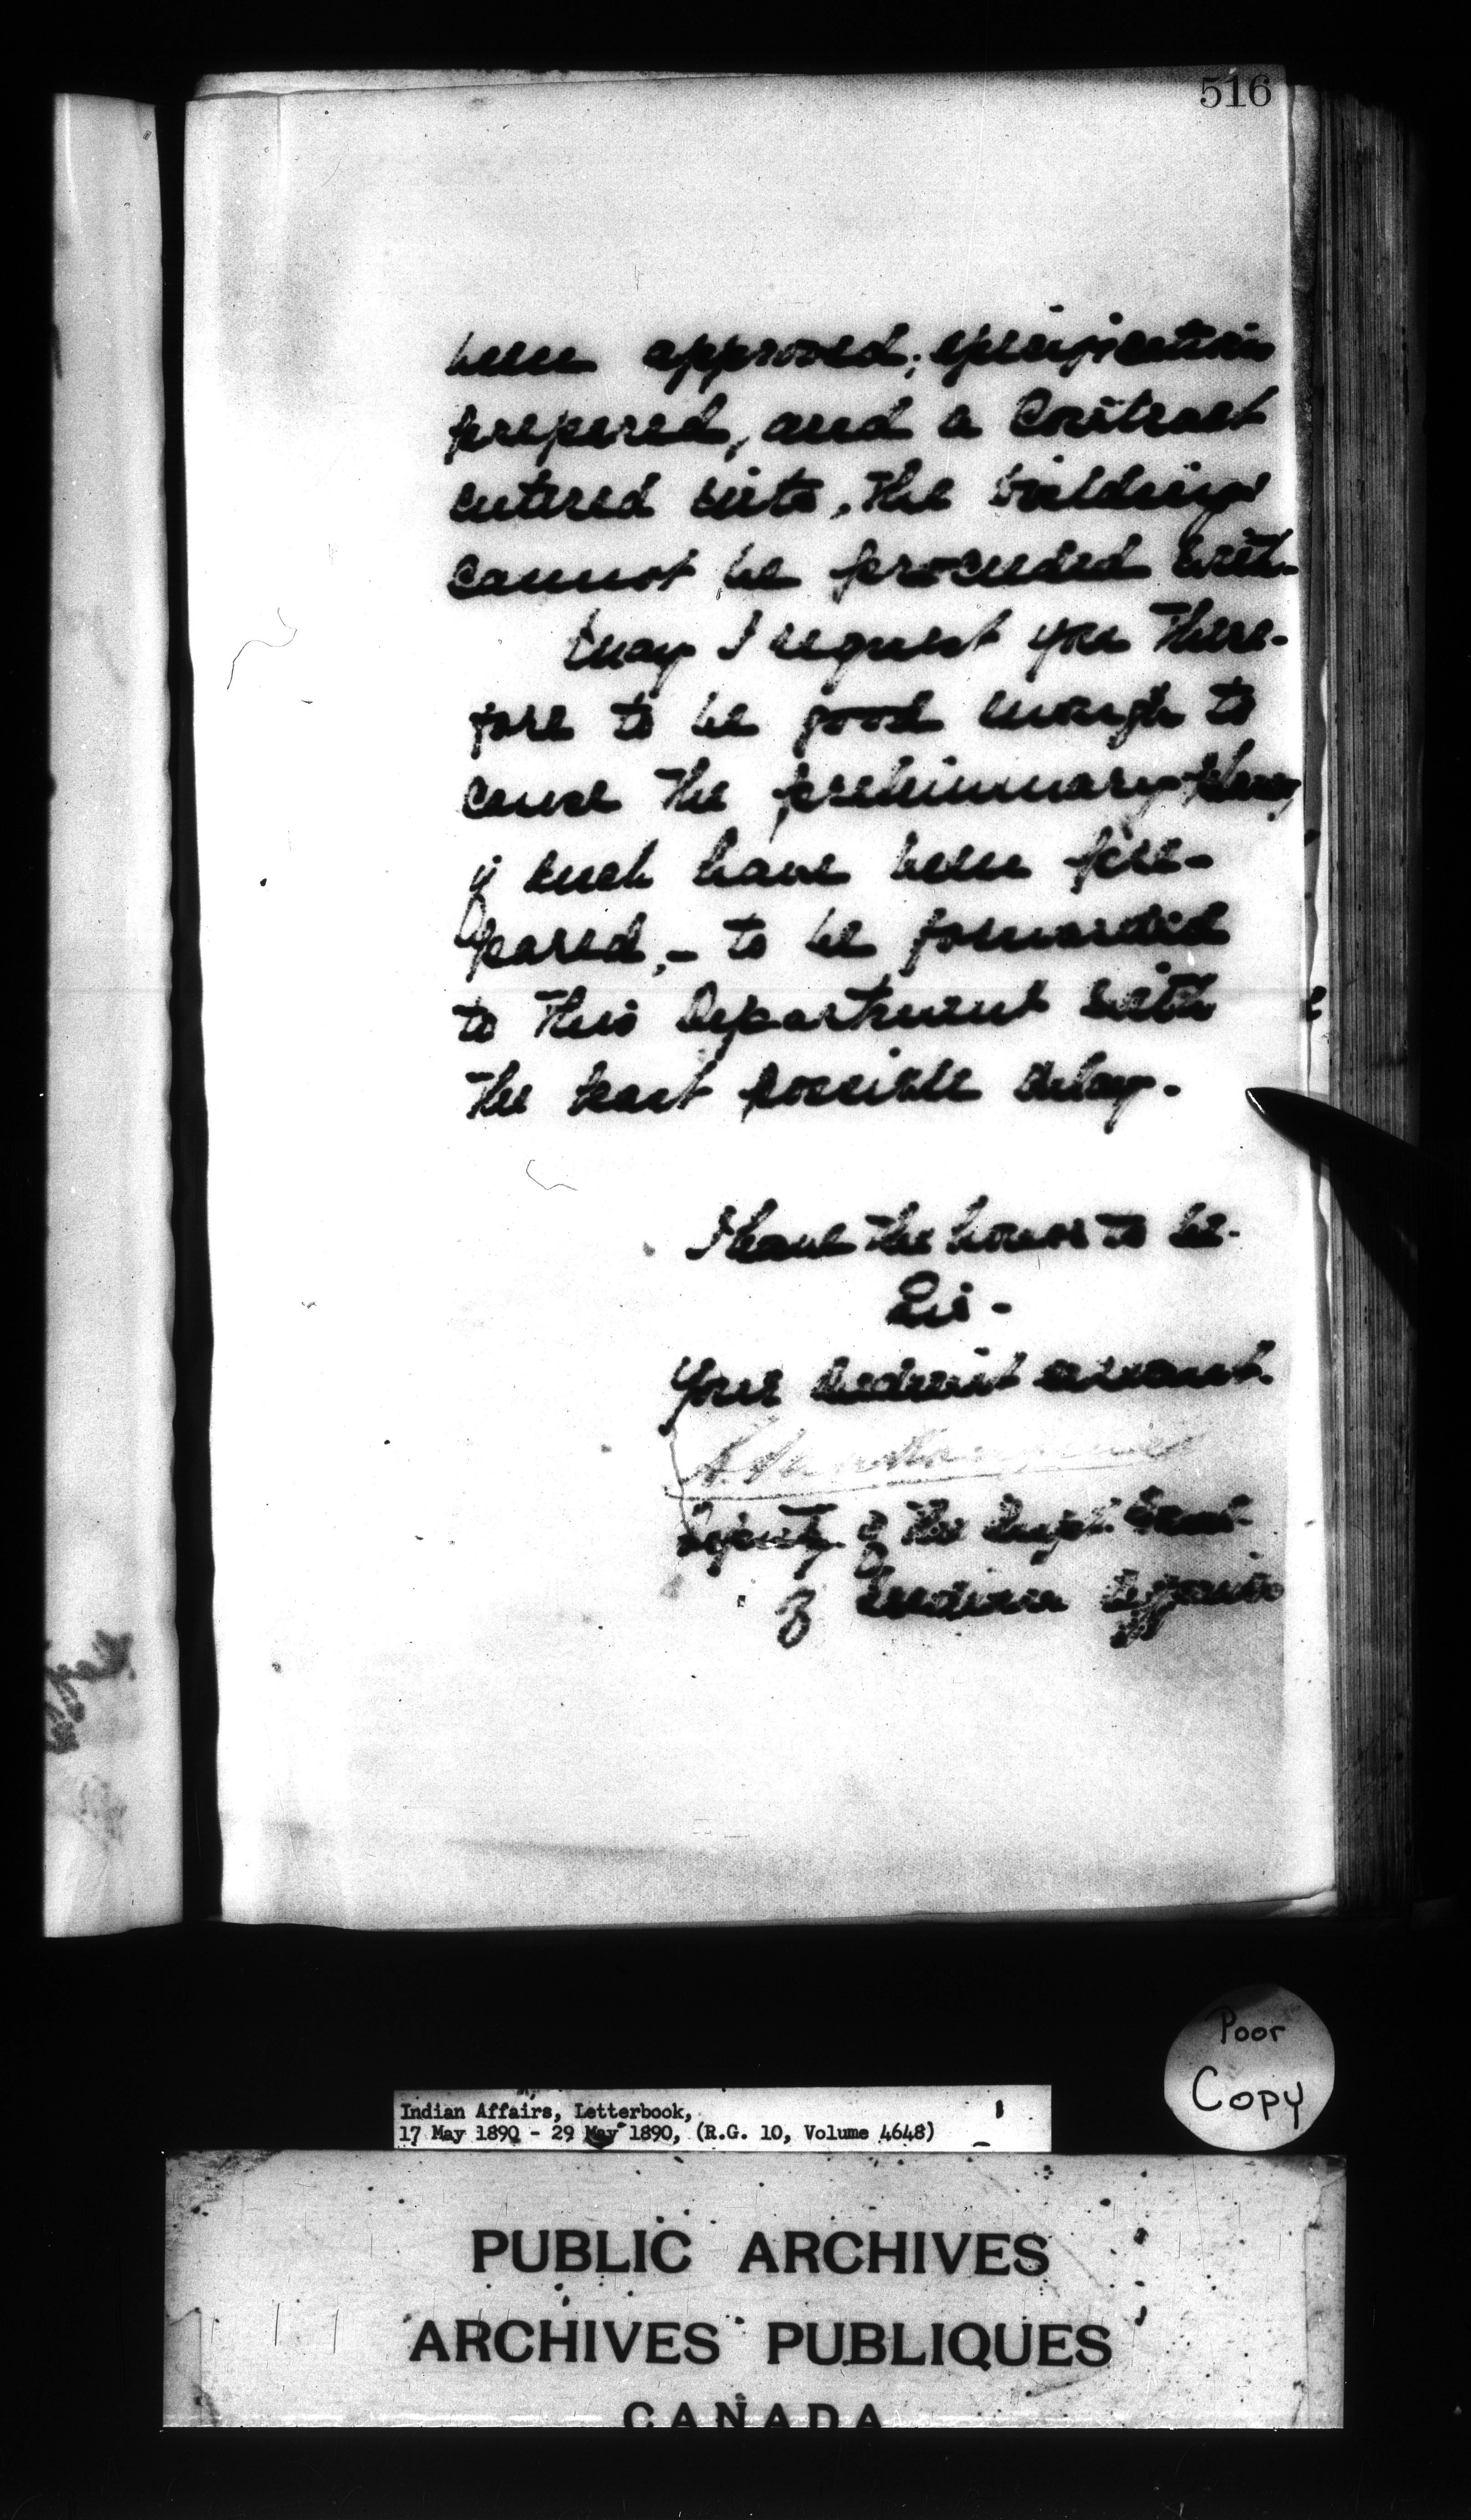 516
been approved, specifications
prepared, and a Contract
entered into, the buildings
cannot be proceeded with.
May I request you there-
fore to be good enough to
cause the preliminary plans,
if such have been pre-
pared, - to be forwarded
to this Department with
the least possible delay.
I have the honor to be.
Sir -
Your obedient servant.
L. Vankoughnet
Deputy of the Supt. Genl.
of Indian Affairs
Poor
Copy
Indian Affairs, Letterbook,
17 May 1890 - 29 May 1890, (R.G. 10, Volume 4648)
PUBLIC ARCHIVES
ARCHIVES PUBLIQUES
CANADA